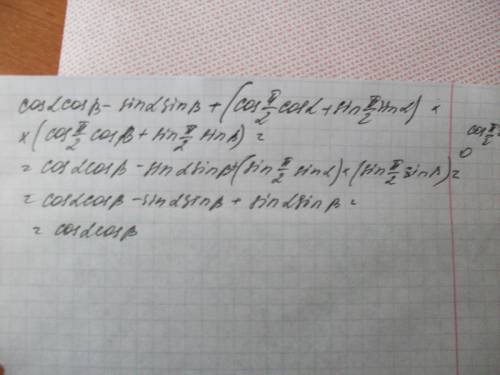 cosαcosβ - sinαsinβ + (cos π/2 cosα + sin π/2 sinα) ×
× (cos π/2 cosβ + sin π/2 sinβ) =
= cosαcosβ - sinαsinβ + (sin π/2 sinα) × (sin π/2 sinβ) =
= cosαcosβ - sinαsinβ + sinαsinβ =
= cosαcosβ
cos π/2 =
0